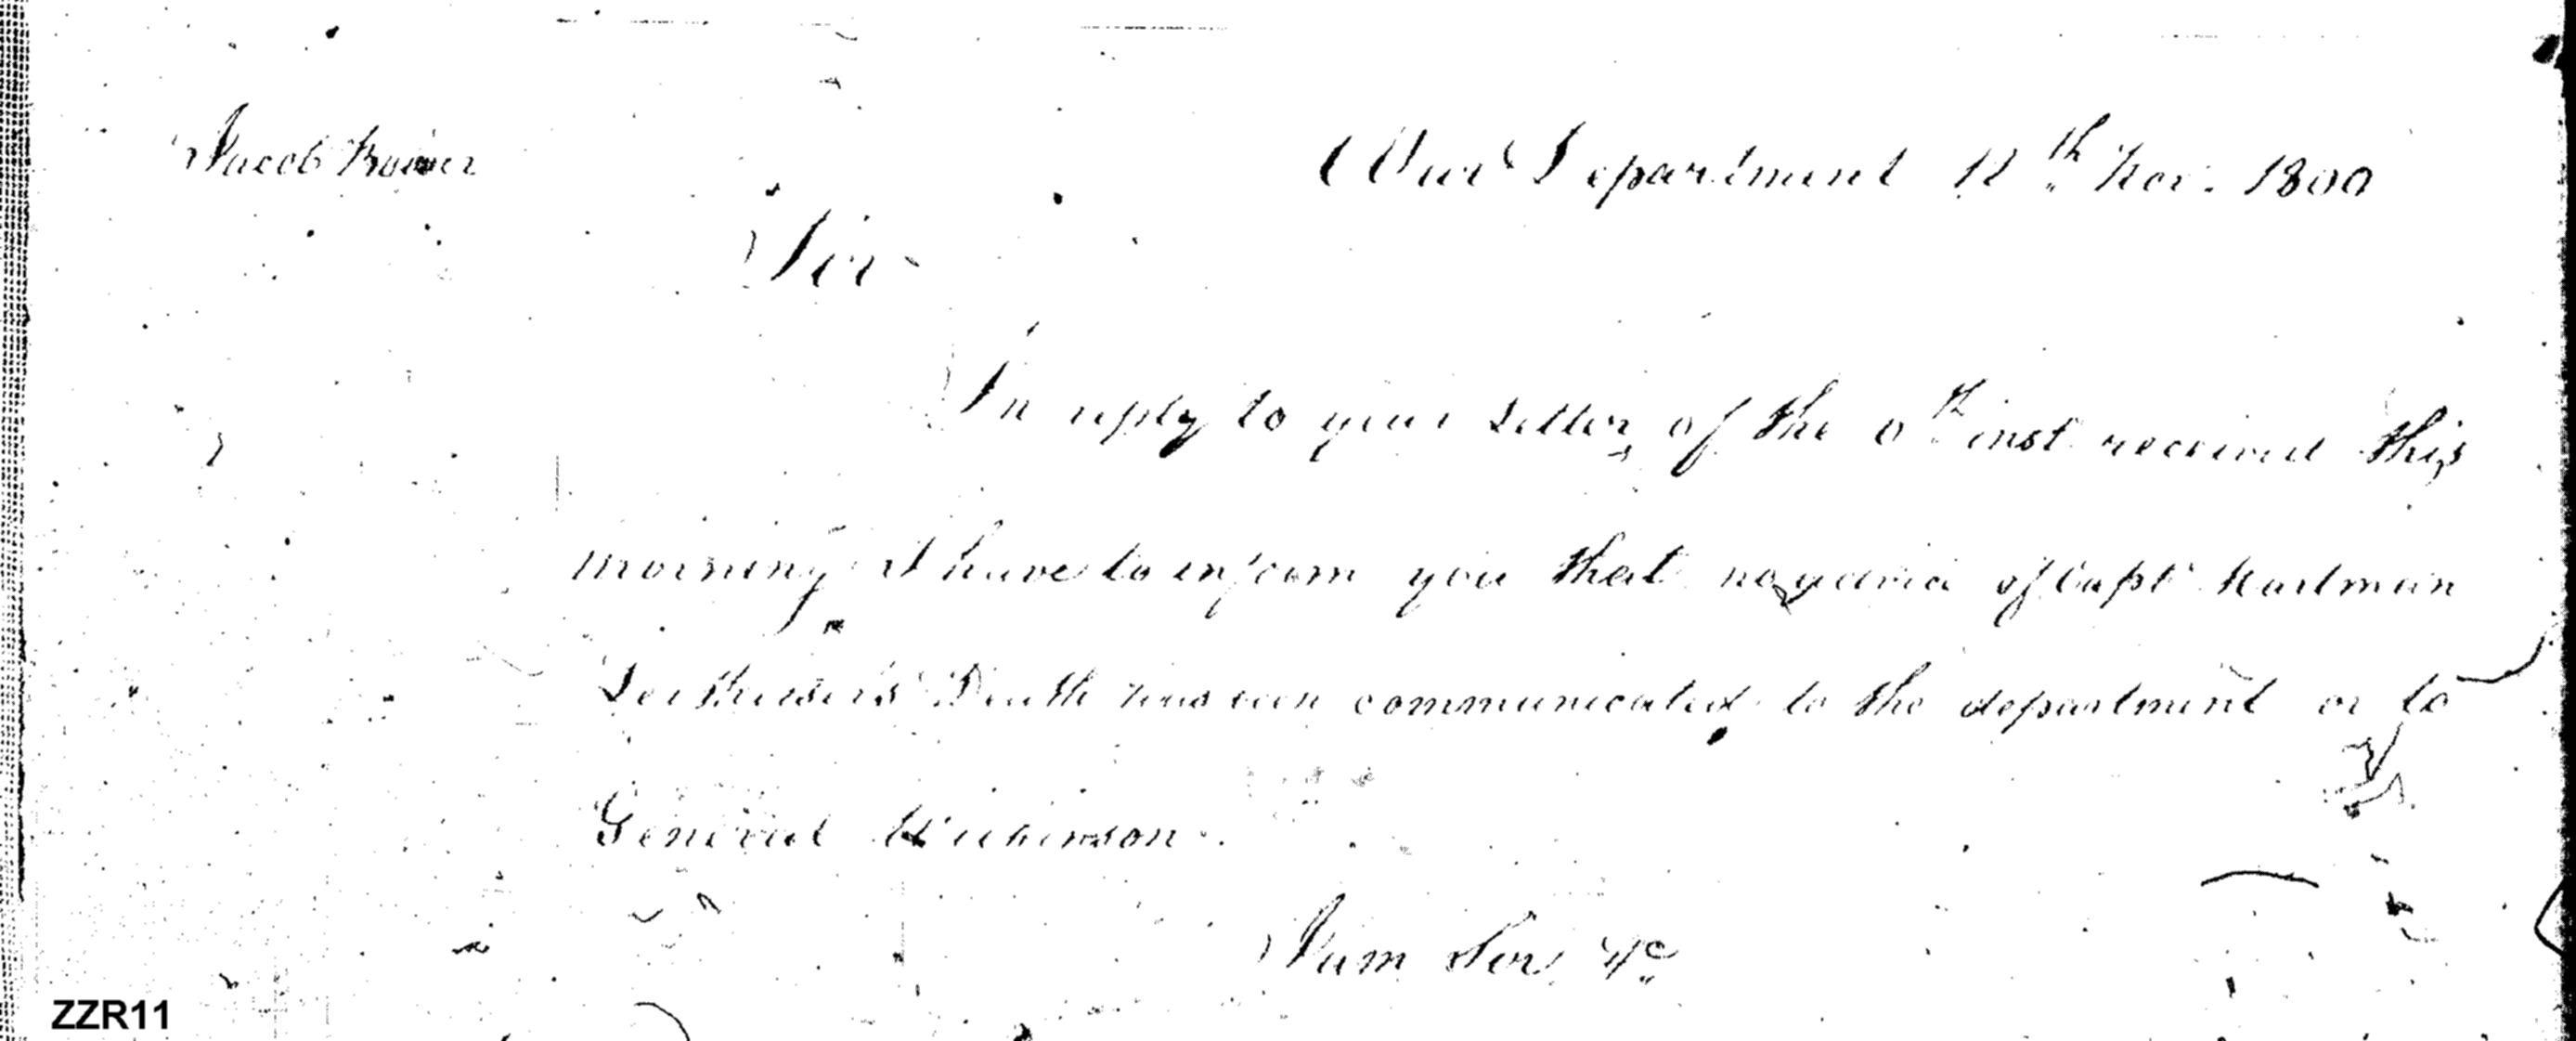 Jacob
War Department 12th Nov. 1800
Sir
In reply to your Letter of the inst received this
morning I have to inform you that no of Capt Hartman
Leitheiser's Death has been communicated to the department or to
General Wilkinson.
I am Sir &c
ZZR11